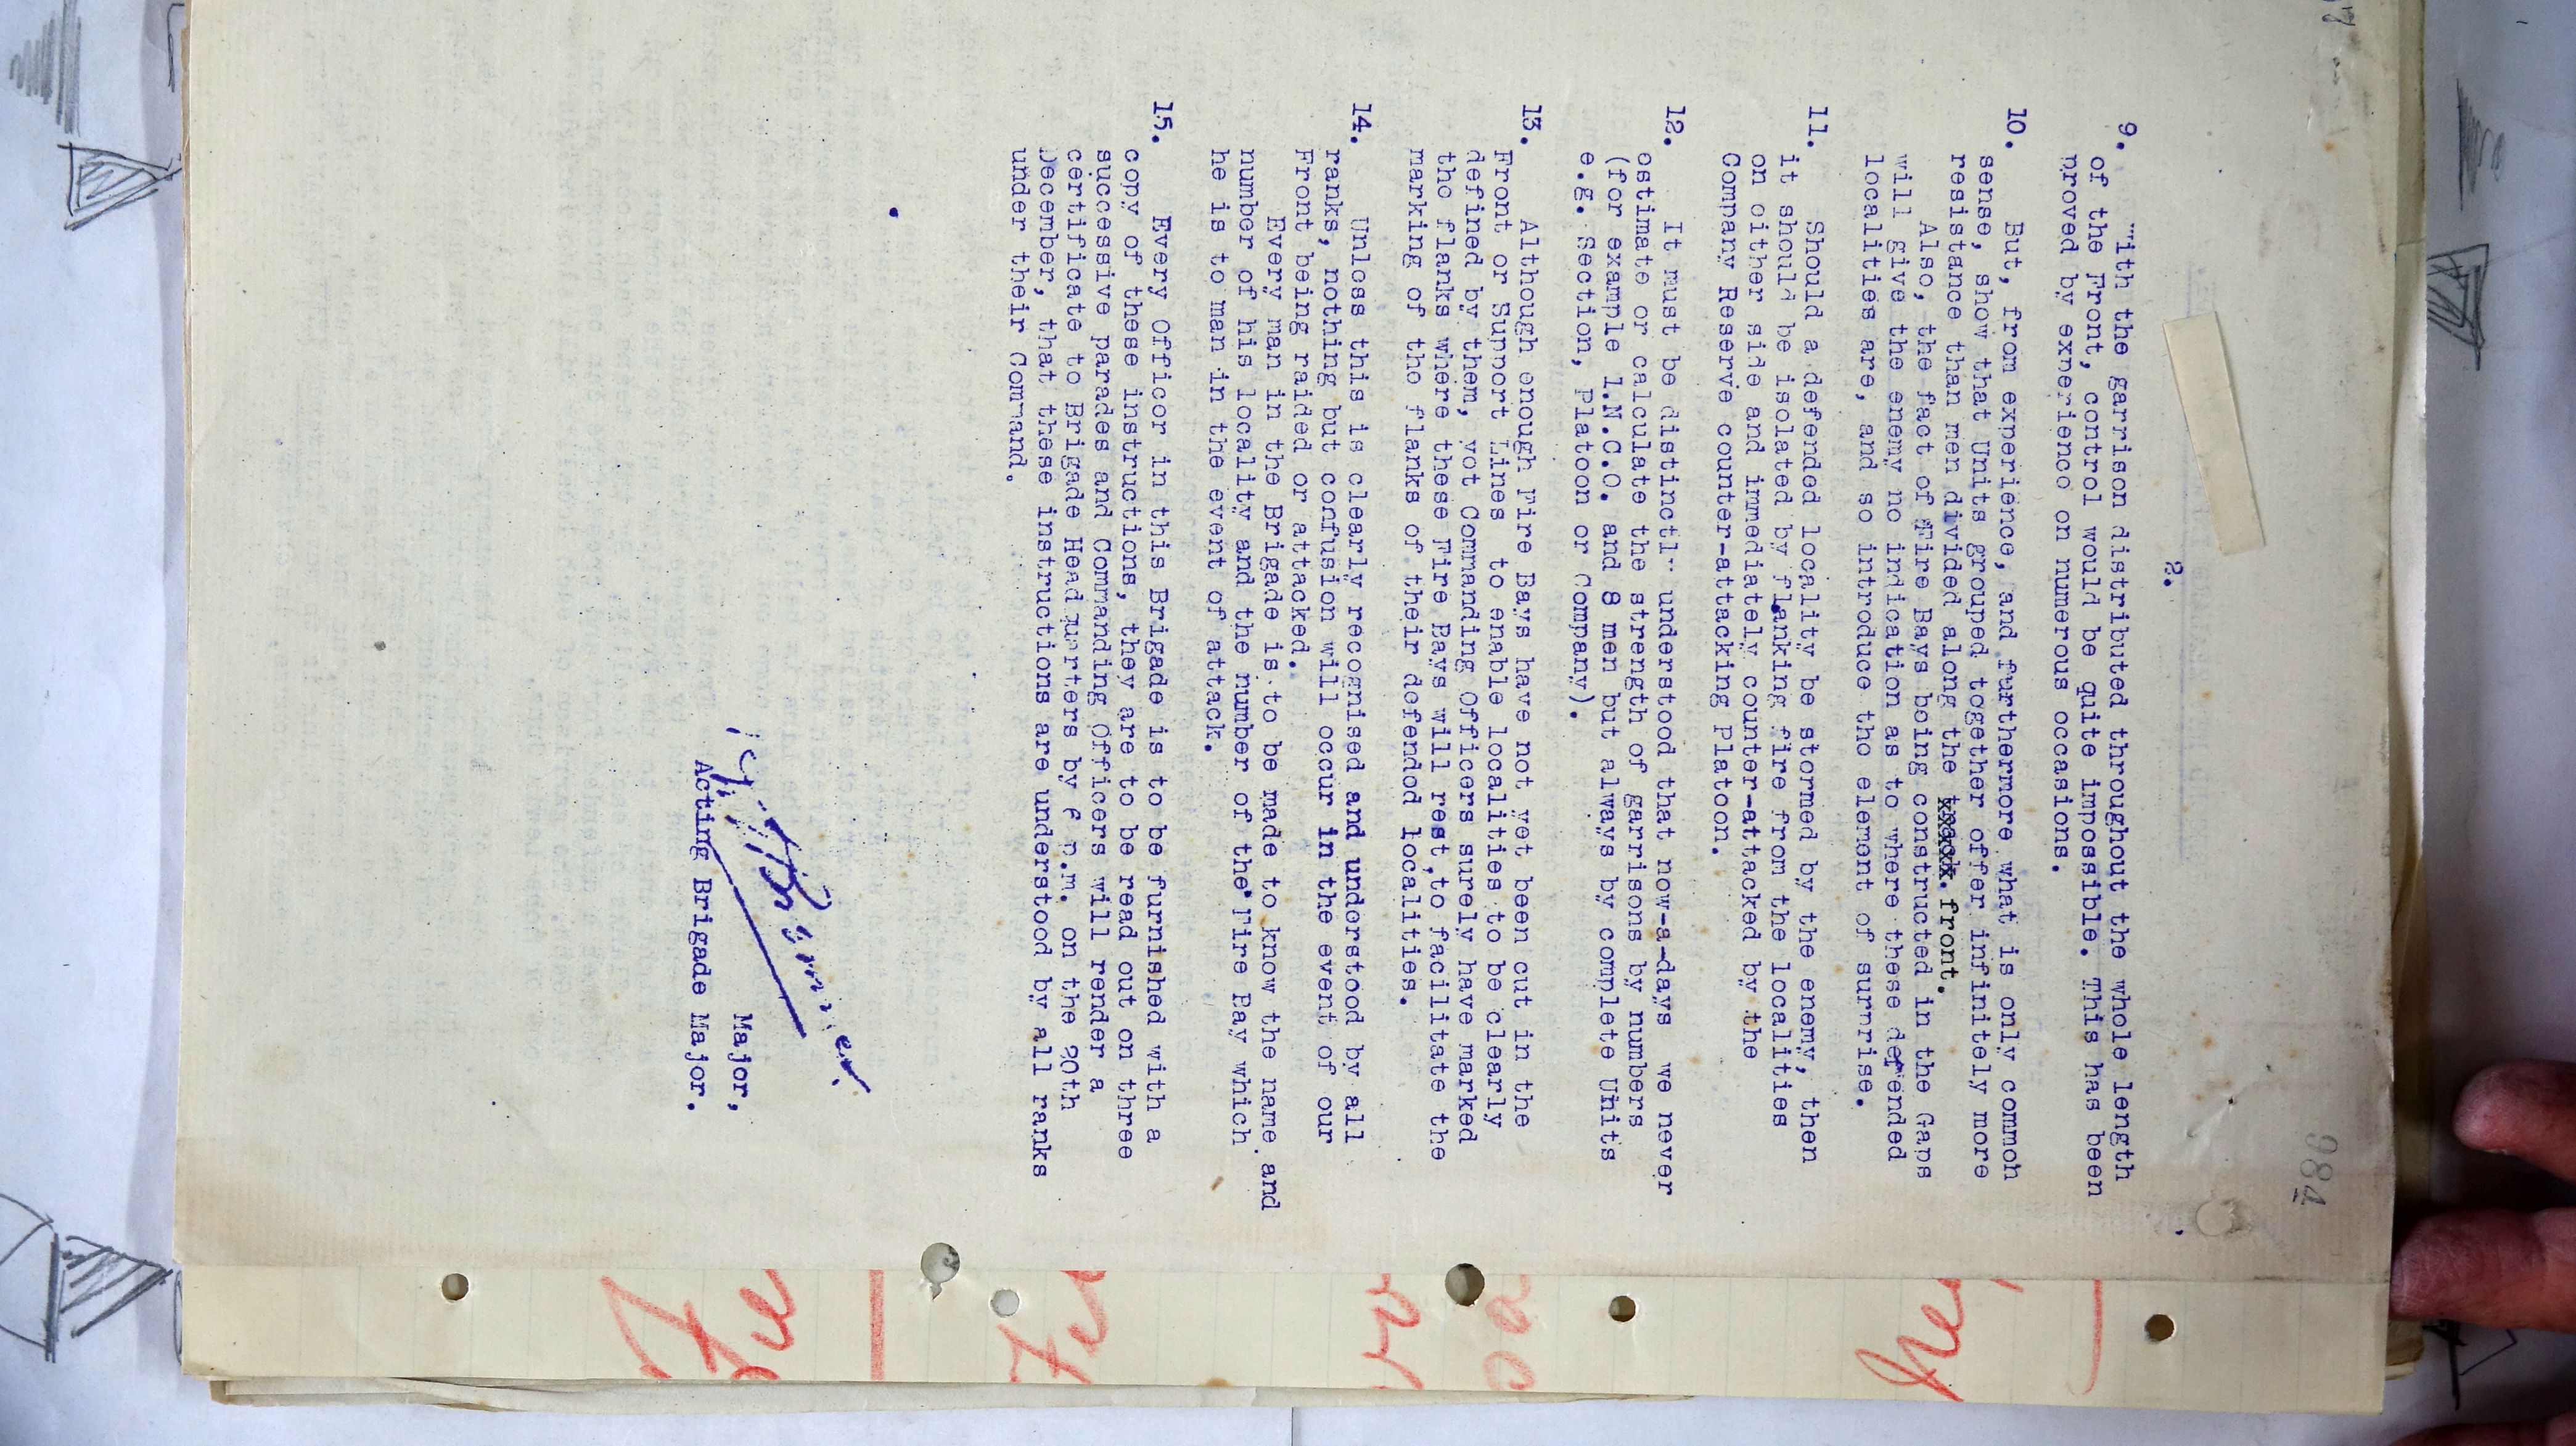 984
2.
9. With the garrison distributed throughout the whole length
of the Front, control would be quite impossible. This has been
proved by experience on numerous occasions.
10. But, from experience, and furthermore what is only common
sense, show that Units grouped together offer infinitely more
resistance than men divided along the front.
Also, the fact of Fire Bays being constructed in the Gaps
will give the enemy no indication as to where these defended
localities are, and so introduce the element of surprise.
11. Should a defended locality be stormed by the enemy, then
it should be isolated by flanking fire from the localities
on either side and immediately counter-attacked by the
Company Reserve counter-attacking Platoon.
12. It must be distinctly understood that now-a-days we never
estimate or calculate the strength of garrisons by numbers
(for example 1.N.C.O. and 8 men but always by complete Units
e.g. Section, Platoon or Company).
13. Although enough Fire Bays have not yet been cut in the
Front or Support Lines to enable localities to be clearly
defined by them, yet Commanding Officers surely have marked
the flanks where these Fire Bays will rest, to facilitate the
marking of the flanks of their defended localities.
14. Unless this is clearly recognised and understood by all
ranks, nothing but confusion will occur in the event of our
Front being raided or attacked.
Every man in the Brigade is to be made to know the name and
number of his locality and the number of the Fire Bay which
he is to man in the event of attack.
15. Every Officer in this Brigade is to be furnished with a
copy of these instructions, they are to be read out on three
successive parades and Commanding Officers will render a
certificate to Brigade Headquarters by 6 p.m. on the 20th
December, that these instructions are understood by all ranks
under their Command.
Major,
Acting Brigade Major.